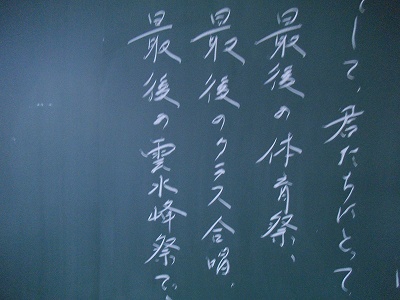 して、君たちにとって
最後の体育祭、
最後のクラス合唱、
最後の雲水峰祭で、